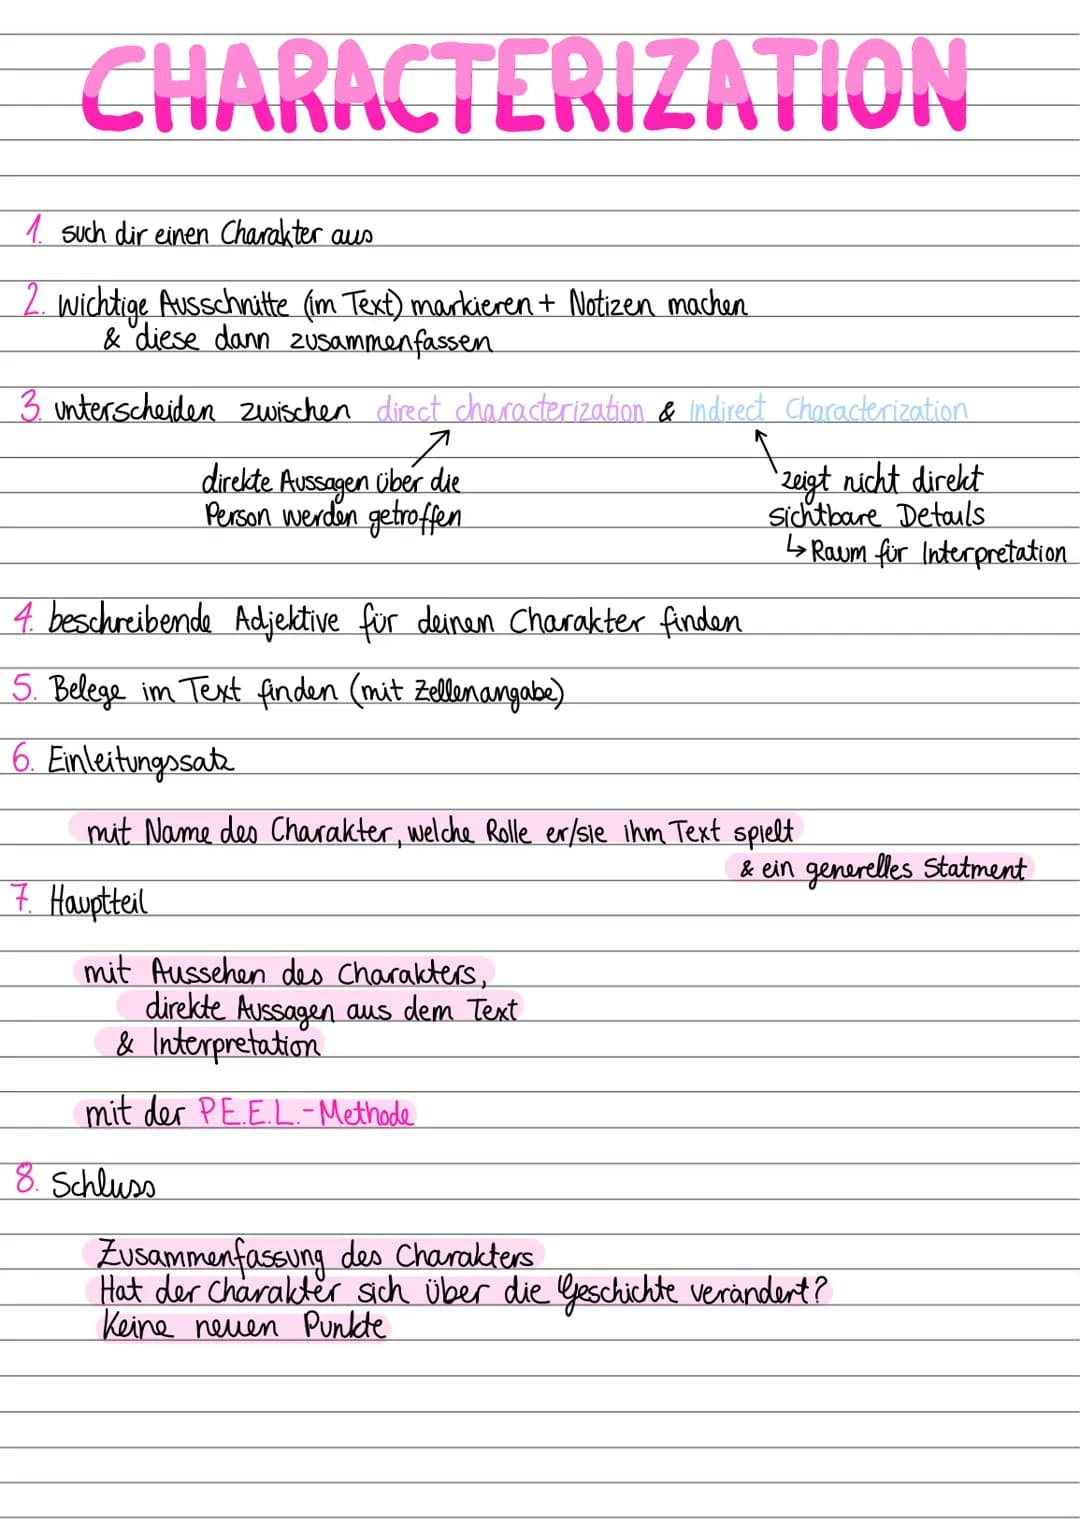 CHARACTERIZATION
1. such dir einen Charakter aus
2. wichtige Ausschnitte (im Text) markieren + Notizen machen
& diese dann zusammenfassen
3. unterscheiden zwischen direct characterization & indirect Characterization
direkte Aussagen über die
Person werden getroffen
zeigt nicht direkt
sichtbare Details
↳ Raum für Interpretation
4. beschreibende Adjektive für deinen Charakter finden
5. Belege im Text finden (mit Zeilenangabe)
6. Einleitungssatz
mit Name des Charakter, welche Rolle er/sie ihm Text spielt
& ein generelles Statment
7. Hauptteil
mit Aussehen des Charakters,
direkte Aussagen aus dem Text
& Interpretation
mit der P.E.E.L.-Methode
8. Schluss
Zusammenfassung des Charakters
Hat der Charakter sich über die Geschichte verändert?
Keine neuen Punkte